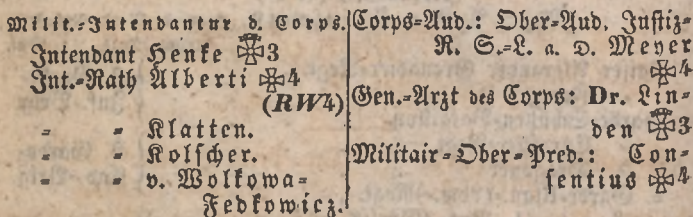 Milit.-Intendantur d. Corps.
Intendant Henke 3
Int.-Rath Alberti 4
(RW4)
- - Klatten.
- - Kolscher.
- - v. Wolkowa-
Fedkowicz.
Corps-Aud.: Ober-Aud. Justiz-
R. S.-L. a. D. Meyer
4
Gen.-Arzt des Corps: Dr. Lin-
den 3
Militair-Ober-Pred.: Con-
sentius 4